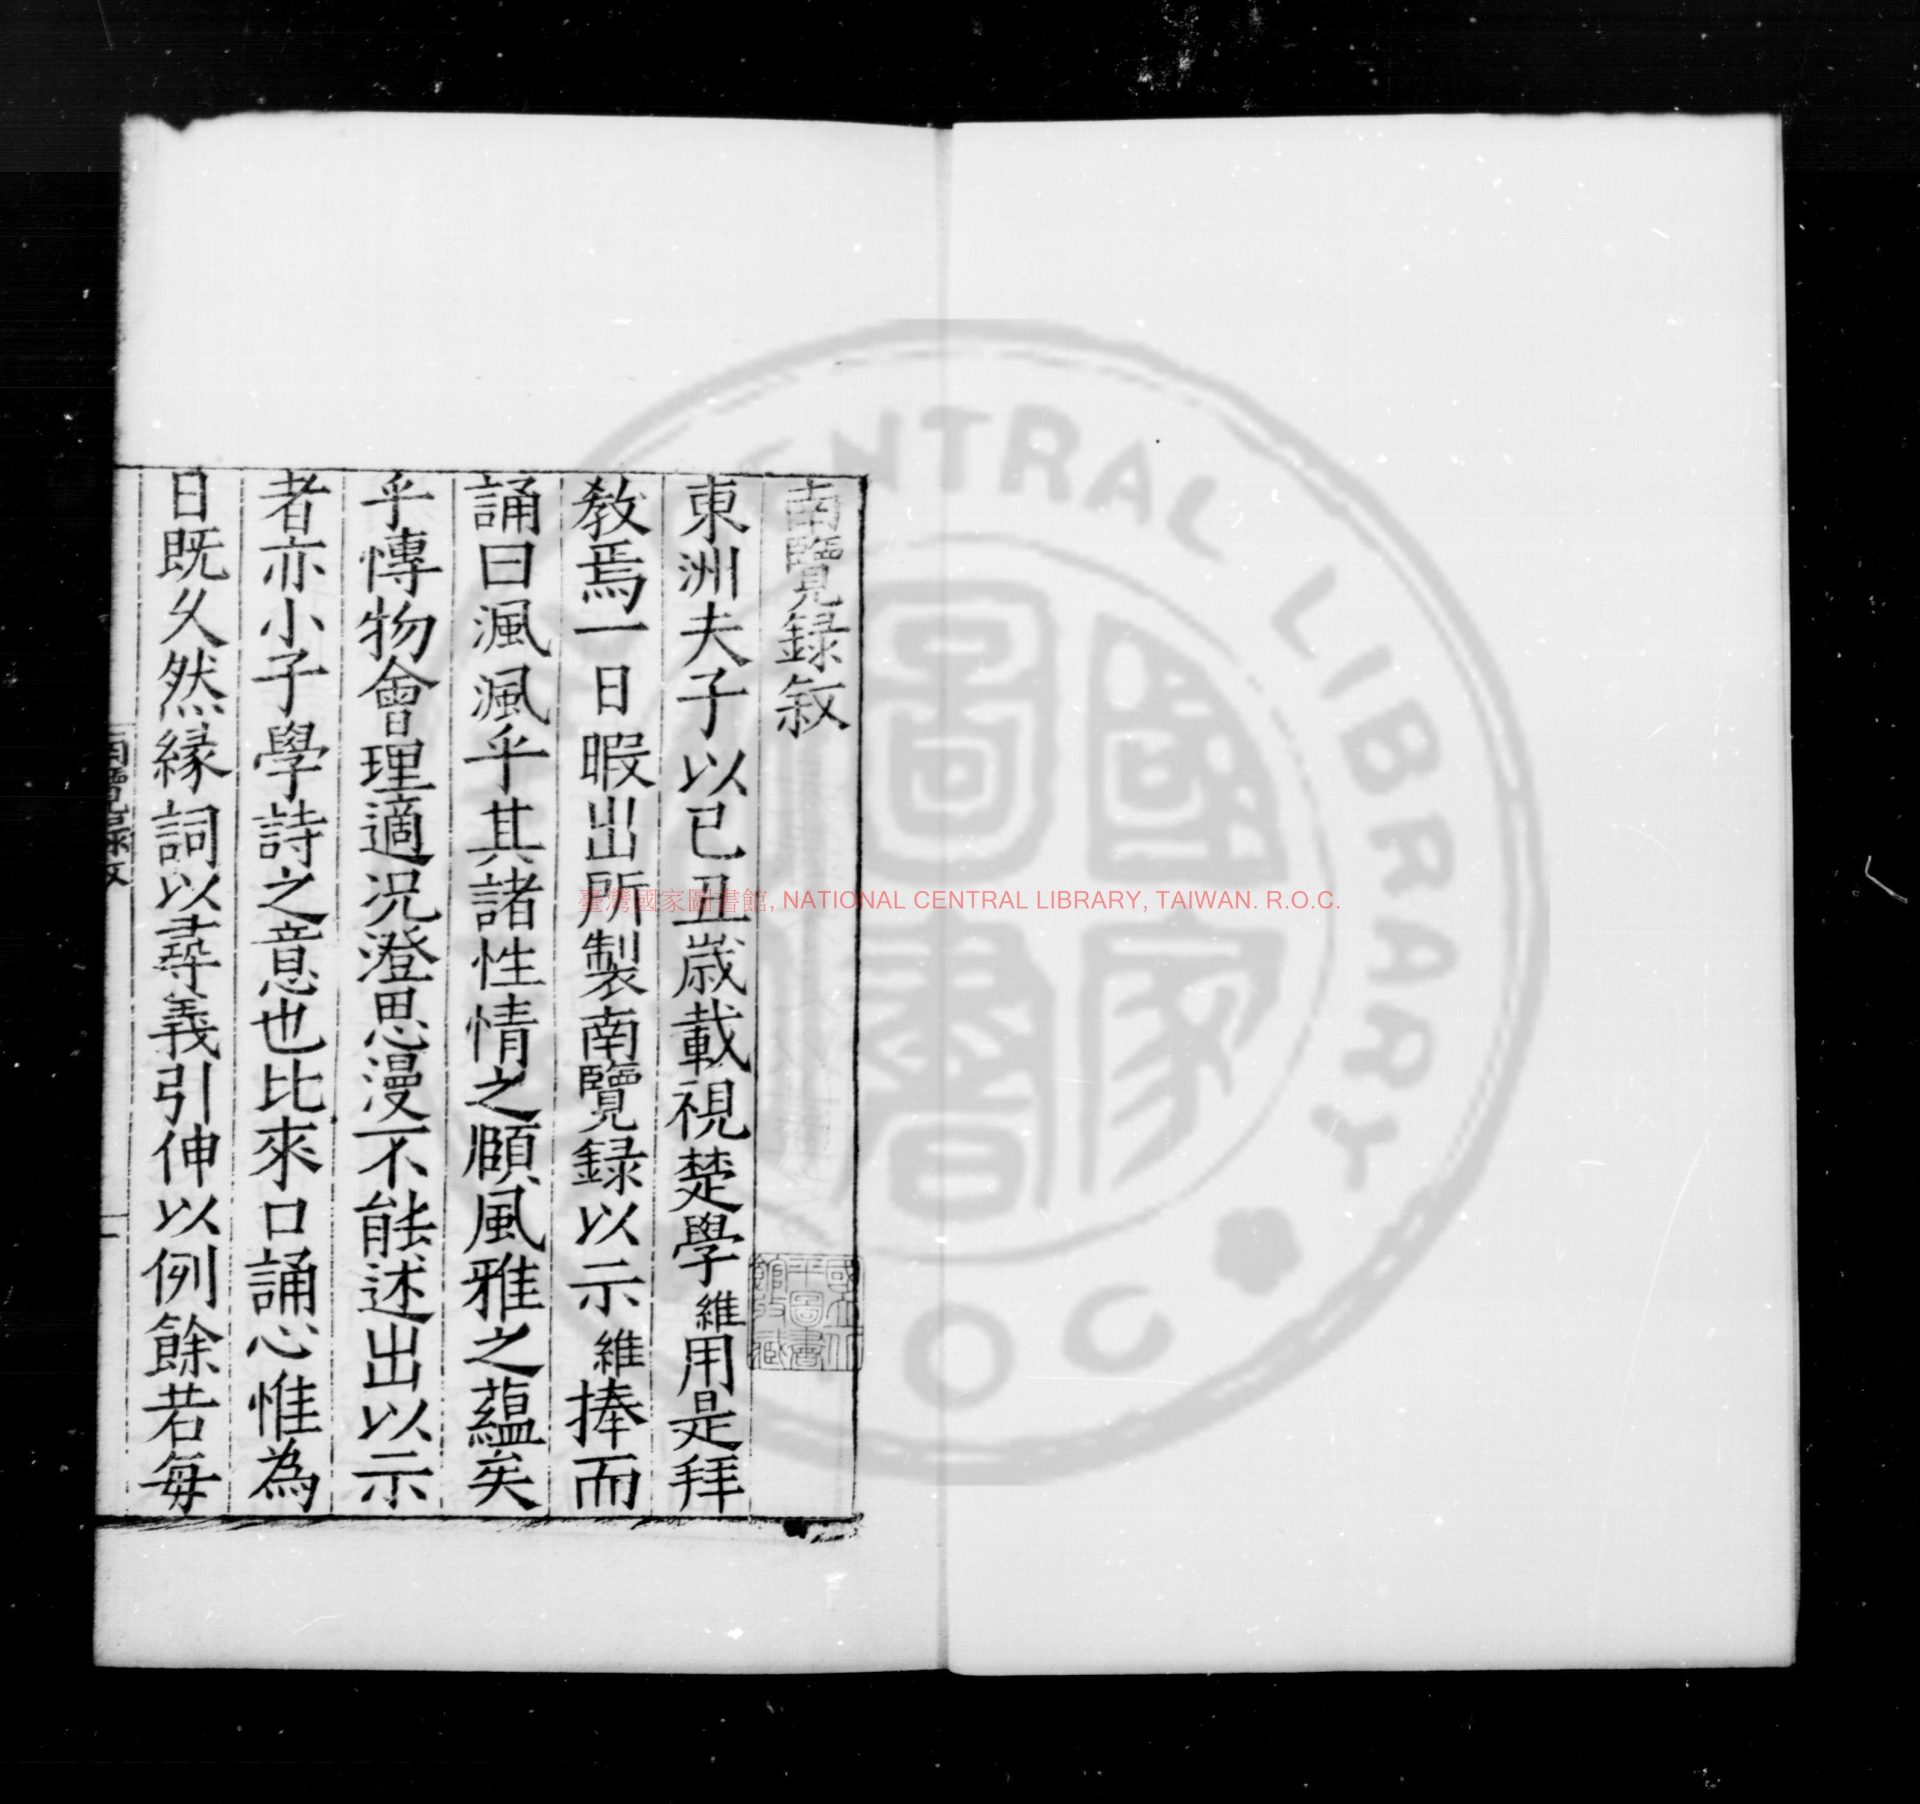 南覽錄敘
東洲夫子以已丑歲載視楚學維用是拜
教焉一日暇出所製南覽錄以示維捧而
誦曰渢渢乎其諸性情之頤風雅之蘊矣
乎愽物會理適况澄思漫不能述出以示
者亦小子學詩之意也比來口誦心惟為
日既久然緣詞以尋義引伸以例餘若每
南覽錄敘
一
國立北
平圖書
館收藏
臺灣國家圖書館, NATIONAL CENTRAL LIBRARY, TAIWAN. R.O.C.
國家圖書
CENTRAL LIBRARY